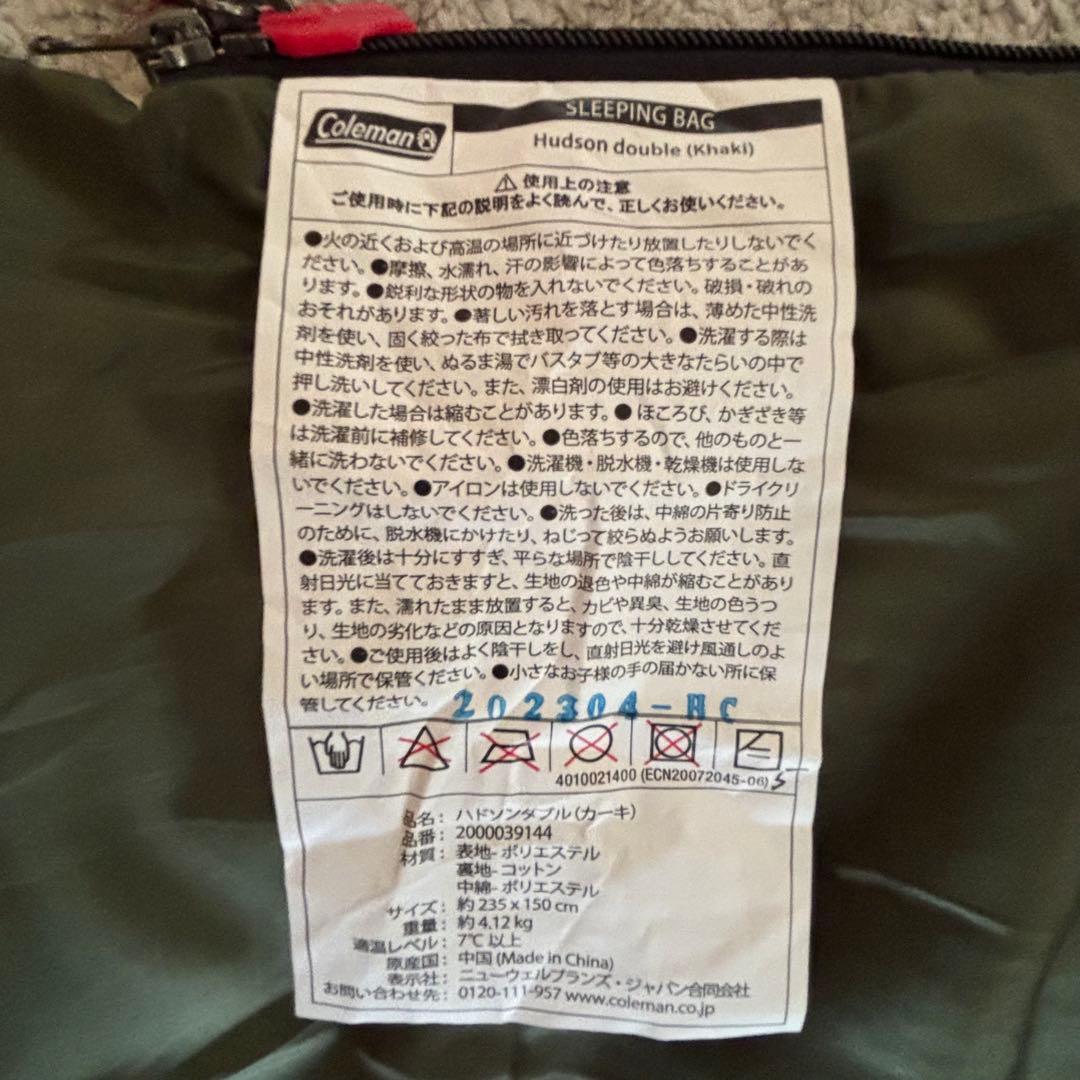 Coleman
SLEEPING BAG
Hudson double (Khaki)
⚠ 使用上の注意
ご使用時に下記の説明をよく読んで、正しくお使いください。
●火の近くおよび高温の場所に近づけたり放置したりしないでく
ださい。●摩擦、水濡れ、汗の影響によって色落ちすることがあ
ります。●鋭利な形状の物を入れないでください。破損・破れの
おそれがあります。●著しい汚れを落とす場合は、薄めた中性洗
剤を使い、固く絞った布で拭き取ってください。●洗濯する際は
中性洗剤を使い、ぬるま湯でバスタブ等の大きなたらいの中で
押し洗いしてください。また、漂白剤の使用はお避けください。
●洗濯した場合は縮むことがあります。●ほころび、かぎざき等
は洗濯前に補修してください。●色落ちするので、他のものと一
緒に洗わないでください。●洗濯機・脱水機・乾燥機は使用しな
いでください。●アイロンは使用しないでください。●ドライクリ
ーニングはしないでください。●洗った後は、中綿の片寄り防止
のために、脱水機にかけたり、ねじって絞らぬようお願いします。
●洗濯後は十分にすすぎ、平らな場所で陰干ししてください。直
射日光に当てておきますと、生地の退色や中綿が縮むことがあり
ます。また、濡れたまま放置すると、カビや異臭、生地の色うつ
り、生地の劣化などの原因となりますので、十分乾燥させてくだ
さい。●ご使用後はよく陰干しをし、直射日光を避け風通しのよ
い場所で保管ください。●小さなお子様の手の届かない所に保
管してください。
202304-HC
4010021400 (ECN20072045-06) S
品名： ハドソンダブル（カーキ）
品番： 2000039144
材質： 表地- ポリエステル
裏地- コットン
中綿- ポリエステル
サイズ： 約 235 x 150 cm
重量： 約 4.12 kg
適温レベル： 7℃ 以上
原産国： 中国 (Made in China)
表示社： ニューウェルブランズ・ジャパン合同会社
お問い合わせ先： 0120-111-957 www.coleman.co.jp